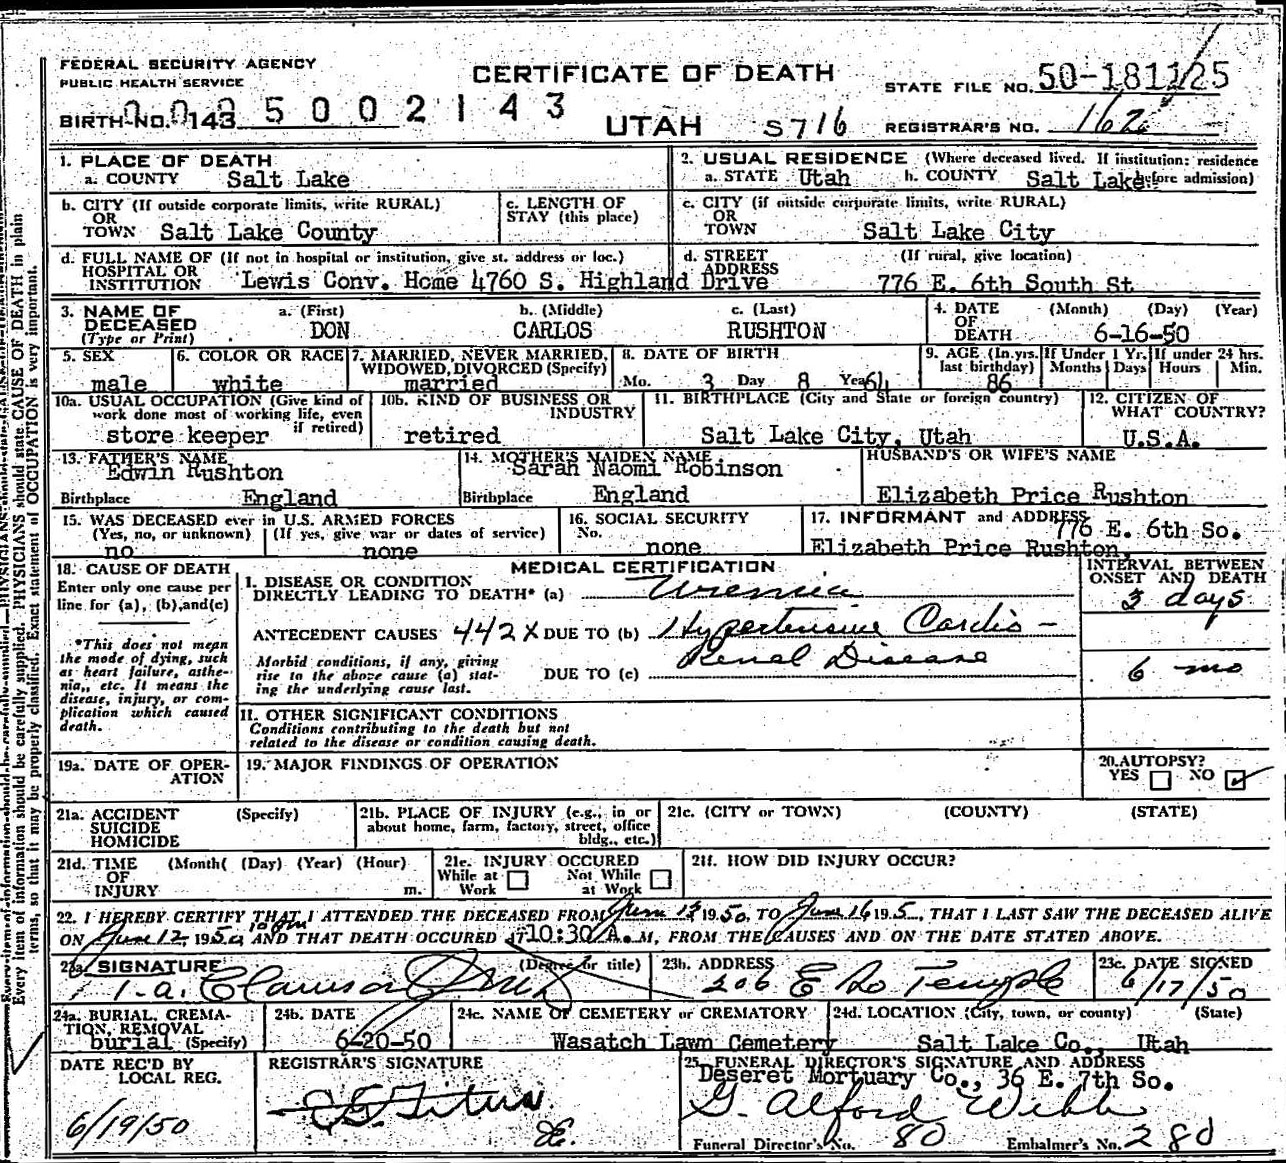 FEDERAL SECURITY AGENCY
PUBLIC HEALTH SERVICE
CERTIFICATE OF DEATH
STATE FILE NO. 50-181125
BIRTH NO. 143 0085002143
UTAH S716
REGISTRAR'S NO. 162
1. PLACE OF DEATH
a. COUNTY Salt Lake
2. USUAL RESIDENCE (Where deceased lived. If institution: residence before admission)
a. STATE Utah b. COUNTY Salt Lake
b. CITY (If outside corporate limits, write RURAL)
OR
TOWN Salt Lake County
c. LENGTH OF
STAY (this place)
c. CITY (if outside corporate limits, write RURAL)
OR
TOWN Salt Lake City
d. FULL NAME OF (If not in hospital or institution, give st. address or loc.)
HOSPITAL OR
INSTITUTION Lewis Conv. Home 4760 S. Highland Drive
d. STREET (If rural, give location)
ADDRESS 776 E. 6th South St
3. NAME OF DECEASED
(Type or Print)
a. (First) b. (Middle) c. (Last)
DON CARLOS RUSHTON
4. DATE OF DEATH (Month) (Day) (Year)
6-16-50
5. SEX
male
6. COLOR OR RACE
white
7. MARRIED, NEVER MARRIED,
WIDOWED, DIVORCED (Specify)
married
8. DATE OF BIRTH
Mo. 3 Day 8 Year 64
9. AGE (In yrs. last birthday)
86
If Under 1 Yr. Months Days
If under 24 hrs. Hours Min.
10a. USUAL OCCUPATION (Give kind of
work done most of working life, even
if retired)
store keeper
10b. KIND OF BUSINESS OR
INDUSTRY
retired
11. BIRTHPLACE (City and State or foreign country)
Salt Lake City, Utah
12. CITIZEN OF
WHAT COUNTRY?
U.S.A.
13. FATHER'S NAME
Edwin Rushton
Birthplace England
14. MOTHER'S MAIDEN NAME
Sarah Naomi Robinson
Birthplace England
HUSBAND'S OR WIFE'S NAME
Elizabeth Price Rushton
15. WAS DECEASED ever in U.S. ARMED FORCES
(Yes, no, or unknown) (If yes, give war or dates of service)
no none
16. SOCIAL SECURITY
No. none
17. INFORMANT and ADDRESS 776 E. 6th So.
Elizabeth Price Rushton,
18. CAUSE OF DEATH
Enter only one cause per
line for (a), (b), and (c)
*This does not mean
the mode of dying, such
as heart failure, asthe-
nia,, etc. It means the
disease, injury, or com-
plication which caused
death.
MEDICAL CERTIFICATION
INTERVAL BETWEEN
ONSET AND DEATH
1. DISEASE OR CONDITION
DIRECTLY LEADING TO DEATH* (a) Uremia 3 days
ANTECEDENT CAUSES 442X DUE TO (b) Hypertensive Cardio-
Renal Disease
Morbid conditions, if any, giving
rise to the above cause (a) stat-
ing the underlying cause last.
DUE TO (c) 6 mo
11. OTHER SIGNIFICANT CONDITIONS
Conditions contributing to the death but not
related to the disease or condition causing death.
19a. DATE OF OPER-
ATION
19. MAJOR FINDINGS OF OPERATION
20. AUTOPSY?
YES NO ✓
21a. ACCIDENT (Specify)
SUICIDE
HOMICIDE
21b. PLACE OF INJURY (e.g., in or
about home, farm, factory, street, office
bldg., etc.)
21c. (CITY or TOWN) (COUNTY) (STATE)
21d. TIME (Month( (Day) (Year) (Hour)
OF
INJURY m.
21e. INJURY OCCURED
While at Work Not While at Work
21f. HOW DID INJURY OCCUR?
22. I HEREBY CERTIFY THAT I ATTENDED THE DECEASED FROM June 12 1950, TO June 16 195, THAT I LAST SAW THE DECEASED ALIVE
ON June 12, 1950, AND THAT DEATH OCCURED AT 10:30 A.M, FROM THE CAUSES AND ON THE DATE STATED ABOVE.
23a. SIGNATURE (Degree or title)
23b. ADDRESS
206 E So Temple
23c. DATE SIGNED
6/17/50
24a. BURIAL, CREMA-
TION, REMOVAL
burial (Specify)
24b. DATE
6-20-50
24c. NAME OF CEMETERY or CREMATORY
Wasatch Lawn Cemetery
24d. LOCATION (City, town, or county) (State)
Salt Lake Co., Utah
DATE REC'D BY
LOCAL REG.
6/19/50
REGISTRAR'S SIGNATURE
25. FUNERAL DIRECTOR'S SIGNATURE AND ADDRESS
Deseret Mortuary Co., 36 E. 7th So.
G. Alford Webb
Funeral Director's No. 80 Embalmer's No. 280
Every item of information should be carefully supplied. PHYSICIANS should state CAUSE OF DEATH in plain
terms, so that it may be properly classified. Exact statement of OCCUPATION is very important.